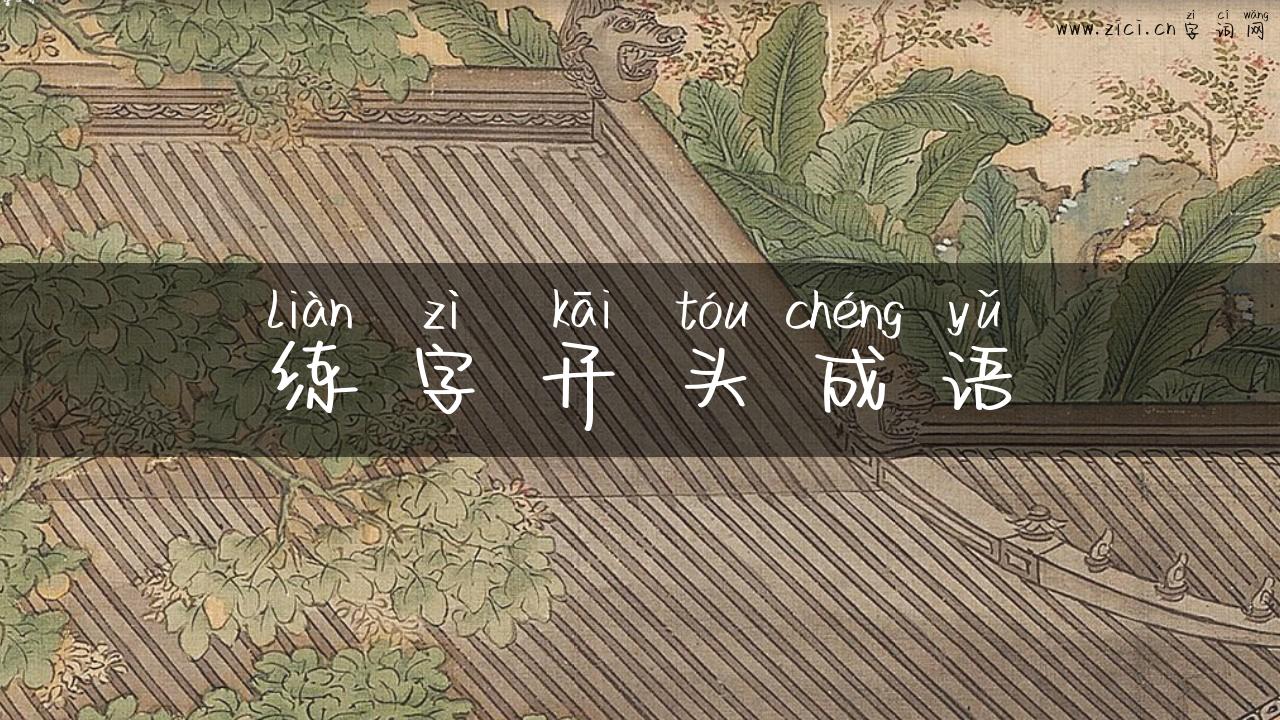 zì cí wǎng
www.zici.cn 字词网
liàn zì kāi tóu chéng yǔ
练字开头成语